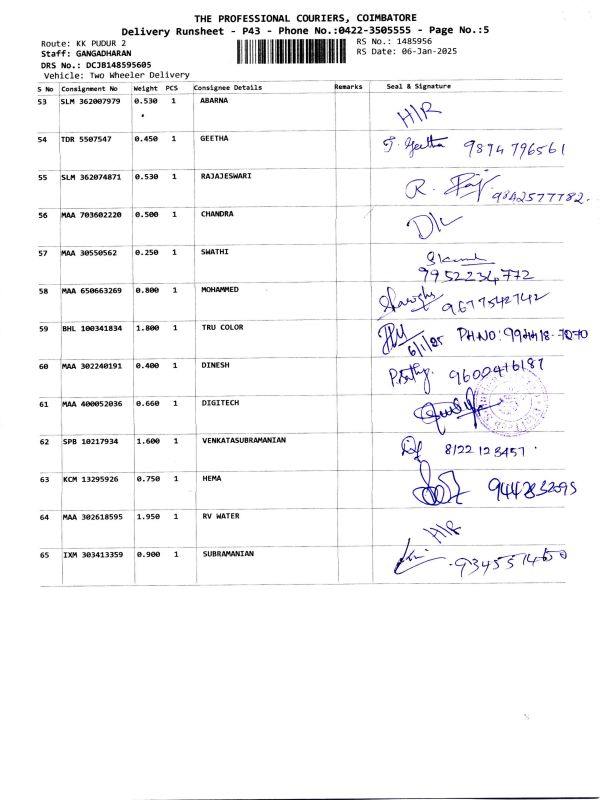 THE PROFESSIONAL COURIERS, COIMBATORE
Delivery Runsheet - P43 - Phone No.:0422-3505555 - Page No.:5
Route: KK PUDUR 2 RS No.: 1485956
Staff: GANGADHARAN RS Date: 06-Jan-2025
DRS No.: DCJB148595605
Vehicle: Two Wheeler Delivery
S No Consignment No Weight PCS Consignee Details Remarks Seal & Signature
53 SLM 362007979 0.530 1 ABARNA H/R
54 TDR 5507547 0.450 1 GEETHA T. Geetha 9894796561
55 SLM 362074871 0.530 1 RAJAJESWARI R. Raji 9842577782.
56 MAA 703602220 0.500 1 CHANDRA D/L
57 MAA 30550562 0.250 1 SWATHI
9952234772
58 MAA 650663269 0.800 1 MOHAMMED 9677542742
59 BHL 100341834 1.800 1 TRU COLOR 6/1/25 PH.NO: 994418-7070
60 MAA 302240191 0.400 1 DINESH 9600416187
61 MAA 400052036 0.660 1 DIGITECH
62 SPB 10217934 1.600 1 VENKATASUBRAMANIAN 8122123457.
63 KCM 13295926 0.750 1 HEMA
64 MAA 302618595 1.950 1 RV WATER H/R
65 IXM 303413359 0.900 1 SUBRAMANIAN